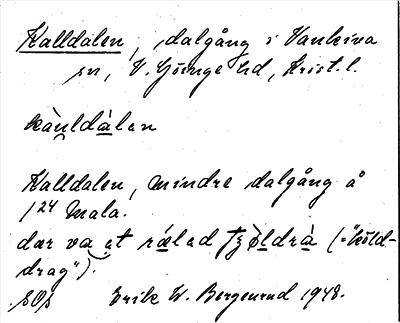 Kalldalen, dalgång i Vankiva
sn, V. Göinge hd, Krist. l.
kàu̯ldàlan
Kalldalen, mindre dalgång å
1²⁴ Mala.
dær va et ræ̀led tjöldrà (="köld-
drag").
sOs Erik W. Bergenrud 1948.